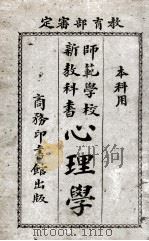 教育部審定
本科用
師範學校
新教科書
心理學
商務印書館出版